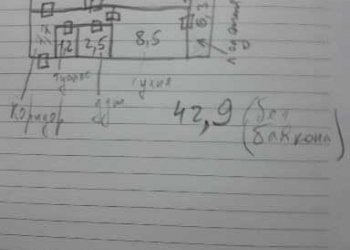 1,2 2,5 8,5
туалет кухня
Коридор душ 42,9 (без
балкона)